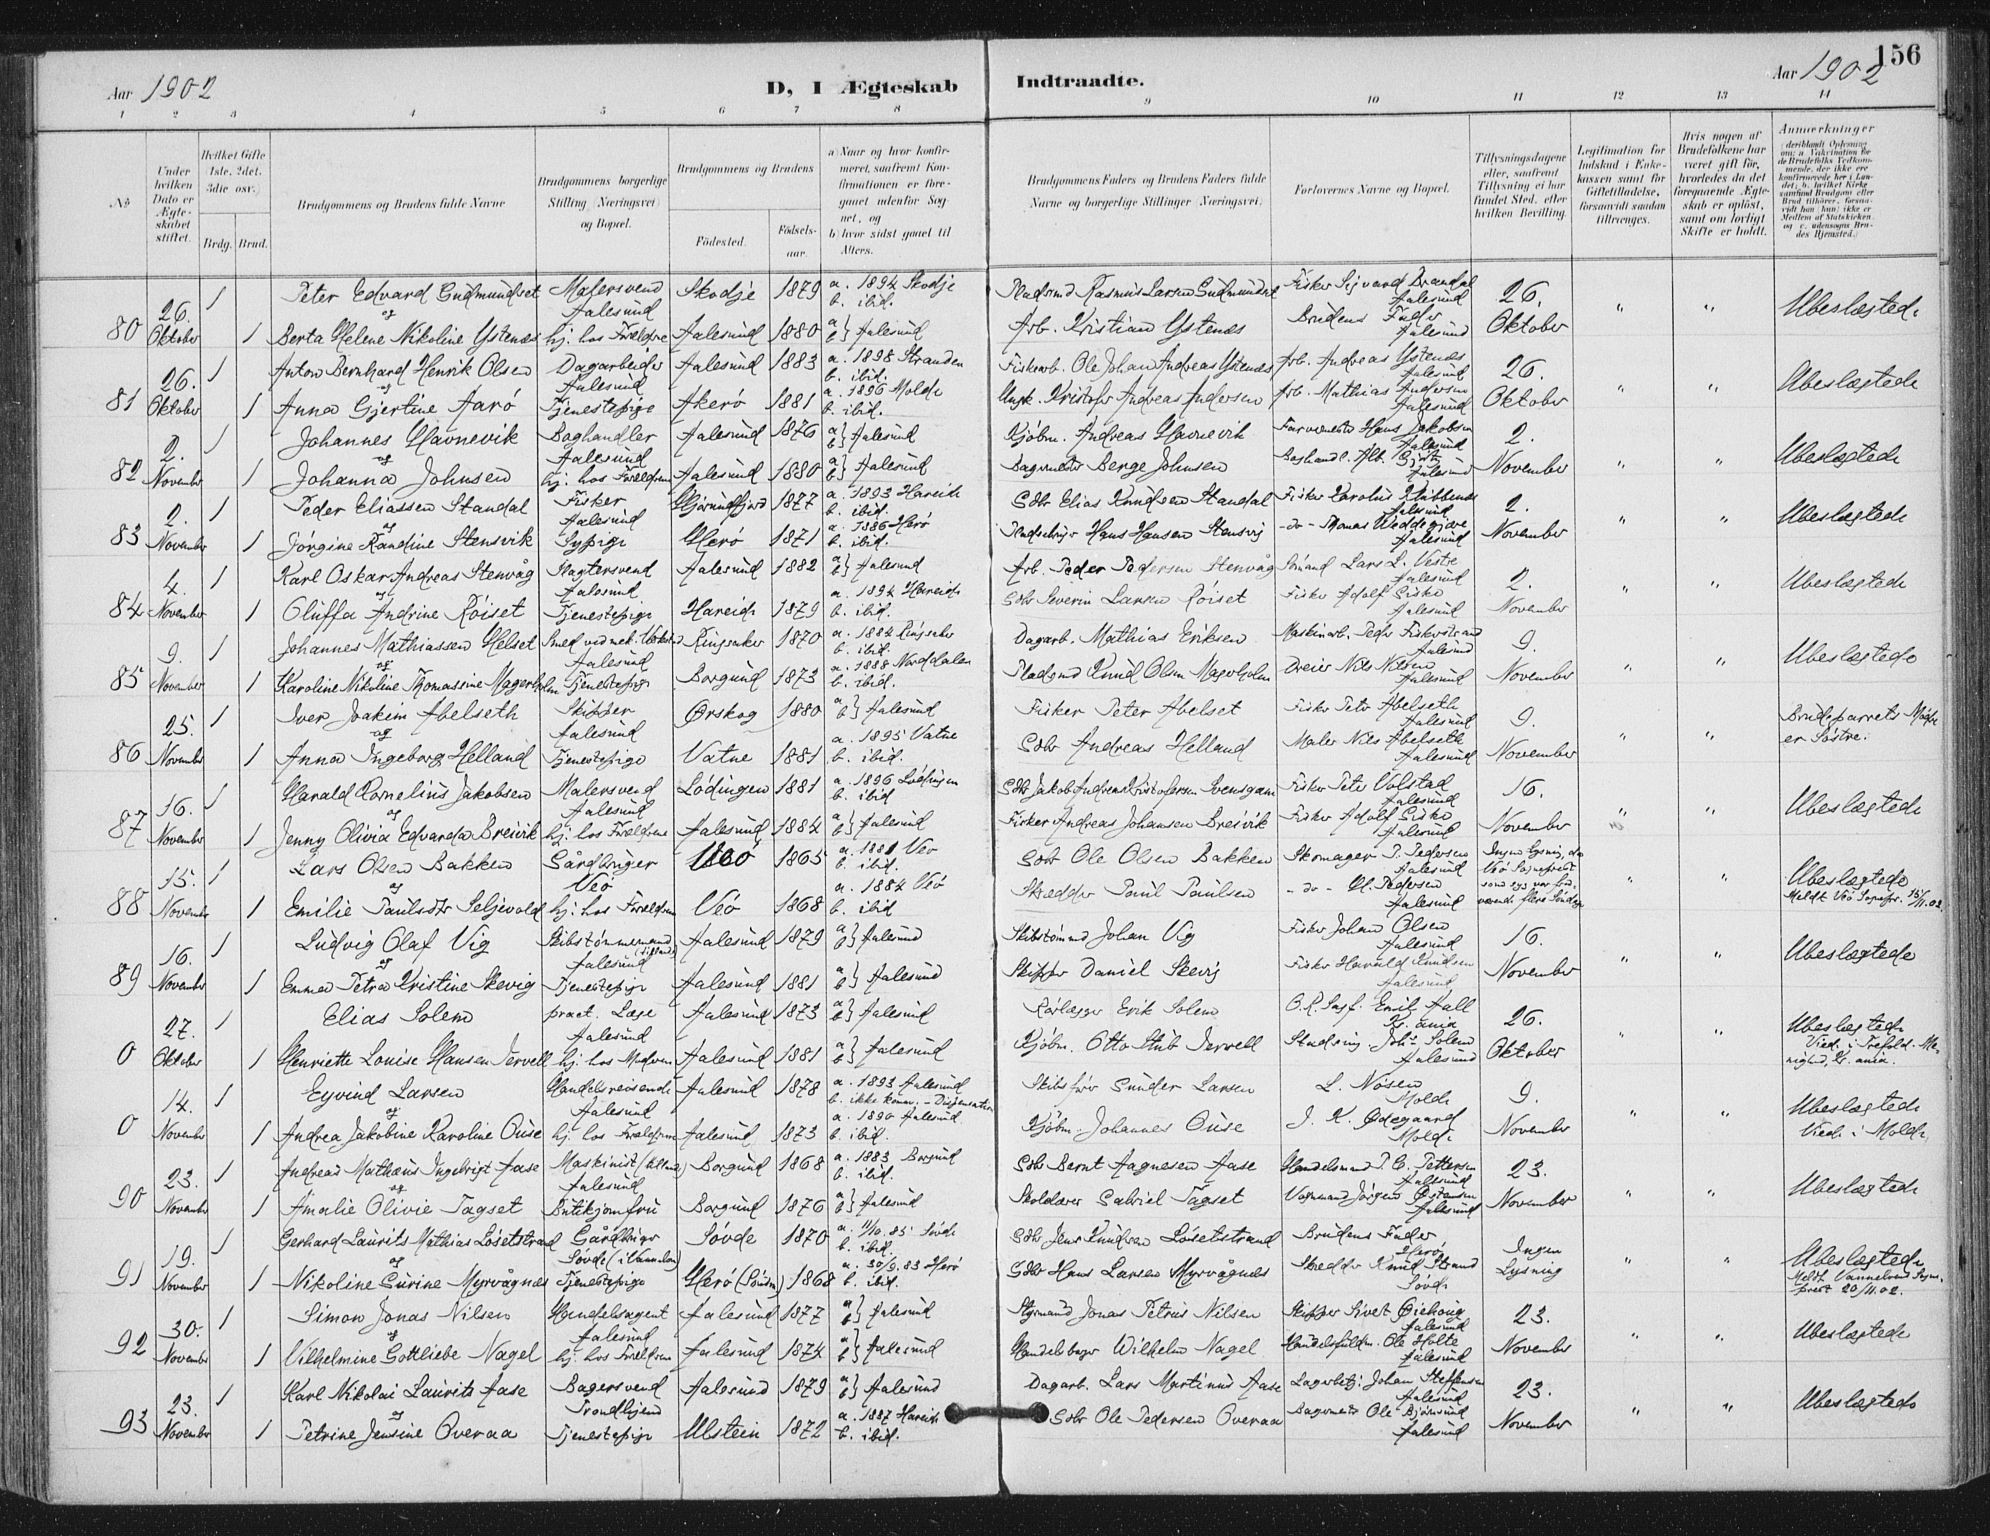 156
Aar 1902
D, I Ægteskab
Indtraadte.
Aar 1902
1 2 3 4 5 6 7 8 9 10 11 12 13 14
№
Under hvilken Dato er Ægteskabet stiftet.
Hvilket Gifte (1ste, 2det, 3die osv.)
Brdg. Brud.
Brudgommens og Brudens fulde Navne
Brudgommens borgerlige Stilling (Næringsvei) og Bopæl.
Brudgommens og Brudens
Fødested.
Fødselsaar.
a) Naar og hvor konfirmeret, saafremt Konfirmationen er foregaaet udenfor Sognet, og
b) hvor sidst gaaet til Alters.
Brudgommens Faders og Brudens Faders fulde Navne og borgerlige Stillinger (Næringsvei)
Forlovernes Navne og Bopæl.
Tillysningsdagene eller, saafremt Tillysning ei har fundet Sted, efter hvilken Bevilling.
Legitimation for Indskud i Enkekassen samt for Giftetilladelse, forsaavidt saadan tiltrænges.
Hvis nogen af Brudefolkene har været gift før, hvorledes da det foregaaende Ægteskab er opløst, samt om lovligt Skifte er holdt.
Anmerkninger
80 26. Oktober 1 Peter Edvard Gudmundset Malersvend Aalesund Skodje 1879 a. 1894 Skodje b. ibid. Pladsmd Rasmus Larsen Gudmundset Fisker Sigvard Brandal Aalesund 26. Oktober " " Ubeslægtede
og
1 Berta Helene Nikoline Ystenæs hj. hos Forældre Aalesund 1880 a b } Aalesund Arb. Kristian Ystenæs Brudens Fader Aalesund
81 26. Oktober 1 Anton Bernhard Henrik Olsen Dagarbeider Aalesund Aalesund 1883 a. 1898 Stranden b. ibid. Fiskerb. Ole Johan Andreas Ystenæs Arb. Andreas Ystenæs Aalesund 26. Oktober " " Ubeslægtede
og
1 Anna Gjertine Aarö Tjenestepige Akerö 1881 a. 1896 Molde b. ibid. Kristofer Andreas Andersen Arb. Mathias Andersen Aalesund
82 2. November 1 Johannes Havnevik Boghandler Aalesund Aalesund 1876 a b } Aalesund Kjøbm. Andreas Havnevik Hans Jakobsen Aalesund 2. November " " Ubeslægtede
og
1 Johanna Johnsen hj. hos Forældrene Aalesund 1880 a b } Aalesund Bagermester Berge Johnsen Boghandl. Alb. Aalesund
83 2. November 1 Peder Eliassen Standal Fisker Aalesund Hjørundfjord 1877 a. 1893 Hareide b. ibid. Gdbr Elias Knudsen Standal Fisker Karolus Aalesund 2. November " " Ubeslægtede
og
1 Jörgine Randine Stensvik Sypige Herö 1871 a. 1886 Herö b. ibid. Hans Hansen Stensvig -do- Thomas Aalesund
84 4. November 1 Karl Oskar Andreas Stenvåg Slagtersvend Aalesund Aalesund 1882 a b } Aalesund Arb. Peder Pedersen Stenvåg Lars L. Veste Aalesund 2. November " " Ubeslægtede
og
1 Oluffa Andrine Röiset Tjenestepige Hareide 1879 a. 1894 Hareide b. ibid. Gdbr Severin Larsen Röiset Fisker Adolf Giske Aalesund
85 9. November 1 Johannes Mathiassen Helset Smed ved mek. Verksted Aalesund Ringsaker 1870 a. 1884 Ringsaker b. ibid. Dagarb. Mathias Eriksen Maskinarb. Peder Fiskerstrand Aalesund 9. November " " Ubeslægtede
og
1 Karoline Nikoline Thomassine Magerholm Tjenestepige Borgund 1873 a. 1888 Norddalen b. ibid. Pladsmd Knud Olsen Magerholm Dreier Nils Nilsen Aalesund
86 25. November 1 Iver Joakim Abelseth Skipper Aalesund Ørskog 1880 a b } Aalesund Fisker Peter Abelset Fisker Petr Abelseth Aalesund 9. November " " Brudeparrets Mødre er Søstre.
og
1 Anna Ingeborg Helland Tjenestepige Vatne 1881 a. 1895 Vatne b. ibid. Gdbr Andreas Helland Maler Nils Abelseth Aalesund
87 16. November 1 Harald Kornelius Jakobsen Malersvend Aalesund Lödingen 1881 a. 1896 Lödingen b. ibid Gdbr Jakob Andreas Kristofersen Fisker Peter Volstad Aalesund 16. November " " Ubeslægtede
og
1 Jenny Olivia Edvarda Breivik hj. hos Forældrene Aalesund 1884 a b } Aalesund Fisker Andreas Johansen Breivik Fisker Adolf Giske Aalesund
88 15. November 1 Lars Olsen Bakken Gårdbruger Veö Veö 1865 a. 1881 Veö b. ibid. Gdbr Ole Olsen Bakken Skomager P. Pedersen Aalesund Ingen lysning, da Veö Sognepræst " " Ubeslægtede Meldt Veö Sognepr. 15/11.02.
og
1 Emilie Paulsdtr Seljevold hj. hos Forældrene Veö 1868 a. 1884 Veö b. ibid Skrædder Paul Paulsen -do- Ol. Pedersen Aalesund
89 16. November 1 Ludvig Olaf Vig Skibstømmermand Aalesund Aalesund 1879 a b } Aalesund Skibstømmd Johan Vig Fisker Johan Olsen Aalesund 16. November " " Ubeslægtede
og
1 Emma Petra Kristine Skevig Tjenestepige Aalesund 1881 a b } Aalesund Skipper Daniel Skevig Fisker Harald Knudsen Aalesund
0 27. Oktober 1 Elias Solem pract. Læge Aalesund Aalesund 1873 a b } Aalesund Rørlægger Erik Solem O.R. Sagf. Emil Aall Kr.ania 26. Oktober " " Ubeslægtede Viede i Trefold. Menighed, Kr.ania.
1 Henriette Louise Hansen Jervell hj. hos Moderen Aalesund 1881 a b } Aalesund Kjøbm. Otto Stub Jervell Stadsing. Johs Solem Aalesund
0 14. November 1 Eyvind Larsen Handelsreisende Aalesund Aalesund 1878 a. 1893 Aalesund b. ikke komm. - Dispensation Skibsfører Gunder Larsen L. Nøisen Molde 9. November " " Ubeslægtede Viede i Molde
og
1 Andrea Jakobine Karoline Ouse hj. hos Forældrene Aalesund 1873 a. 1890 Aalesund b. ibid. Kjøbm. Johannes Ouse J. K. Ødegaard Molde
90 23. November 1 Andreas Mathæus Ingebrigt Aase Maskinist Aalesund Borgund 1868 a. 1883 Borgund b. ibid. Gdbr Bernt Aagnesen Aase Handelsmand P. C. Pettersen Aalesund 23. November " " Ubeslægtede
og
1 Amalie Olivie Tagset Butikjomfru Borgund 1876 a b } Aalesund Skolelærer Gabriel Tagset Vognmand Jörgen Østensen Aalesund
91 19. November 1 Gerhard Laurits Mathias Løsetstrand Gårdbruger Søvde (i Vannelven) Søvde 1870 a. 11/10. 85 Søvde b. ibid. Gdbr Jens Knudsen Løsetstrand Brudens Fader Herö Ingen Lysning " " Ubeslægtede Meldt Vannelvens Sognepræst 20/11.02.
og
1 Nikoline Gurine Myrvågnes Tjenestepige Herö 1868 a. 30/9. 83 Herö b. ibid. Gdbr Hans Larsen Myrvågnes Skrædder Knud Strand Søvde
92 30. November 1 Simon Jonas Nilsen Handelsagent Aalesund Aalesund 1877 a b } Aalesund Styrmand Jonas Petrus Nilsen Skipper Sivert Giehaug Aalesund 23. November " " Ubeslægtede
og
1 Vilhelmine Gottliebe Nagel hj. hos Forældrene Aalesund 1874 a b } Aalesund Handelsborger Wilhelm Nagel Handelsfuldm. Ole Holte Aalesund
93 23. November 1 Karl Nikolai Laurits Aase Bagersvend Trondhjem Aalesund 1879 a b } Aalesund Dagarb. Lars Martinus Aase Lagerbetj. Johan Steffensen Aalesund 23. November " " Ubeslægtede
og
1 Petrine Jensine Overaa Tjenestepige Ulstein 1872 a. 1887 Hareide b. ibid. Gdbr Ole Pedersen Overaa Bagermester Ole Bjørnsund Aalesund